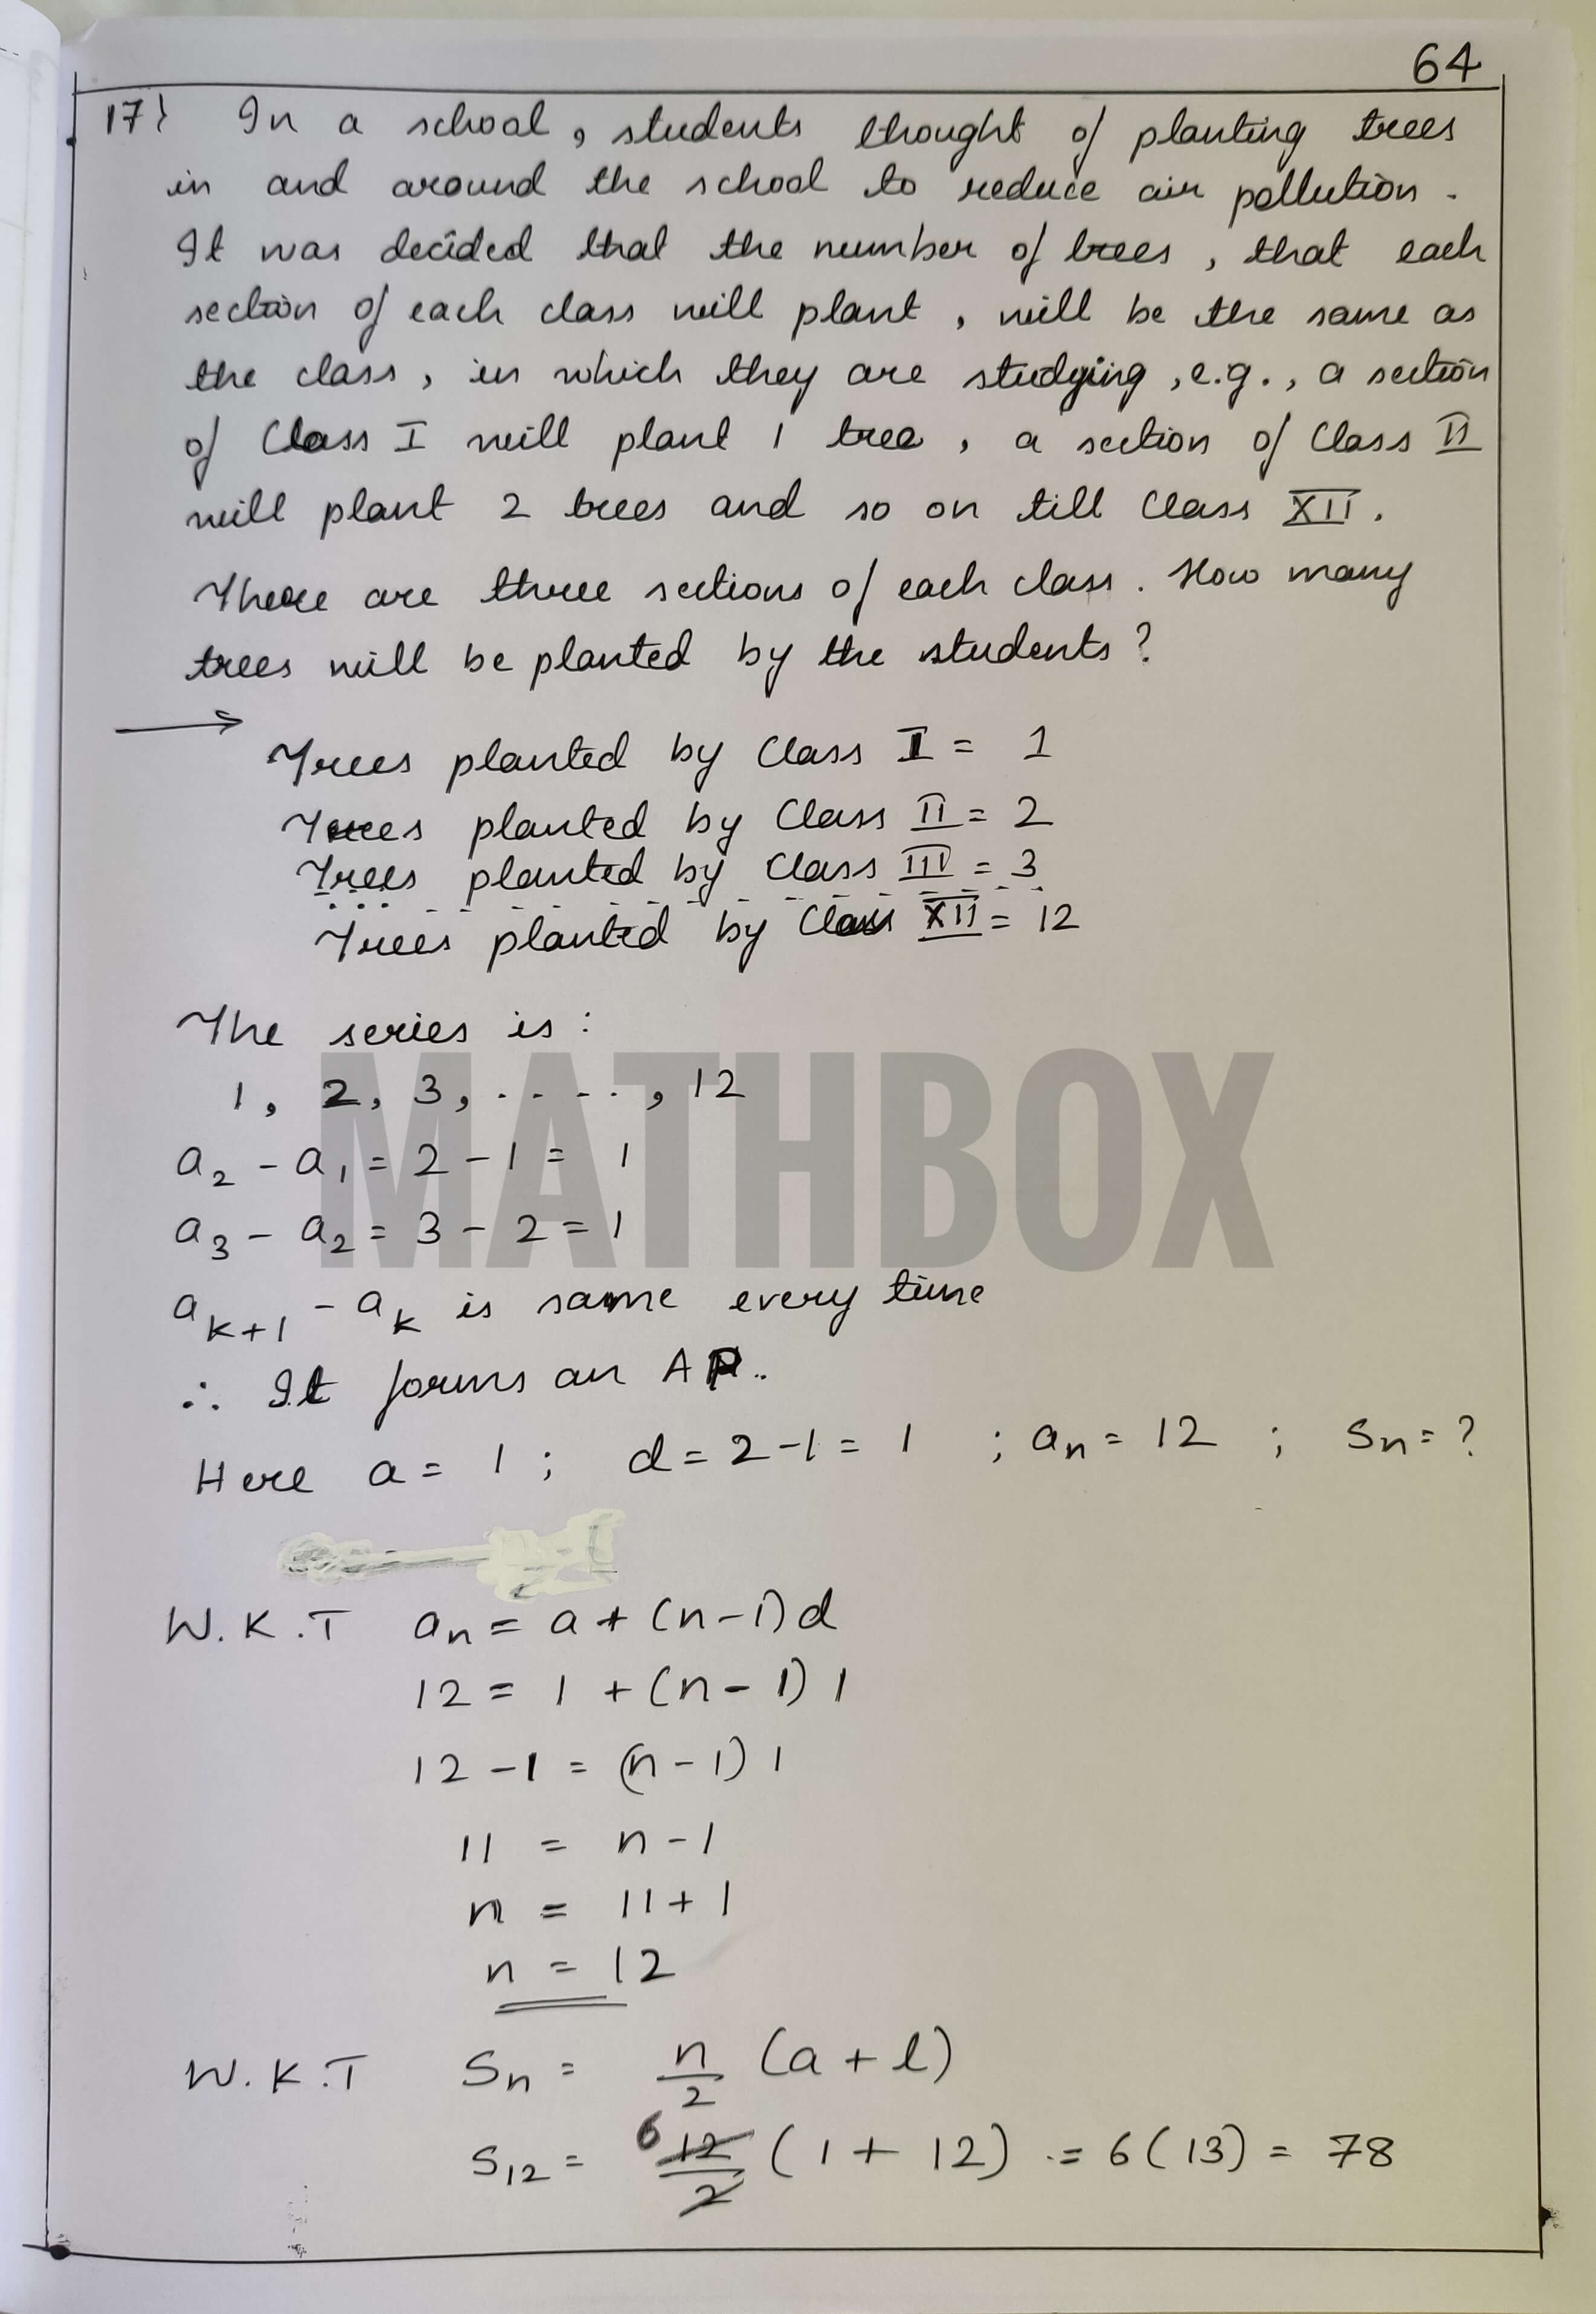 64
17} In a school, students thought of planting trees
in and around the school to reduce air pollution.
It was decided that the number of trees, that each
section of each class will plant, will be the same as
the class, in which they are studying, e.g., a section
of Class I will plant 1 tree, a section of Class II
will plant 2 trees and so on till Class XII.
There are three sections of each class. How many
trees will be planted by the students?
→
Trees planted by Class I = 1
Trees planted by Class II = 2
Trees planted by Class III = 3
Trees planted by Class XII = 12
The series is:
1, 2, 3, ....., 12
MATHBOX
a₂ - a₁ = 2 - 1 = 1
a₃ - a₂ = 3 - 2 = 1
aₖ₊₁ - aₖ is same every time
∴ It forms an AP..
Here a = 1; d = 2-1 = 1 ; aₙ = 12 ; Sₙ = ?
W.K.T aₙ = a + (n-1)d
12 = 1 + (n-1) 1
12 - 1 = (n-1) 1
11 = n-1
n = 11+1
n = 12
W.K.T Sₙ = n/2 (a + l)
S₁₂ = 6 12/2 (1 + 12) = 6(13) = 78